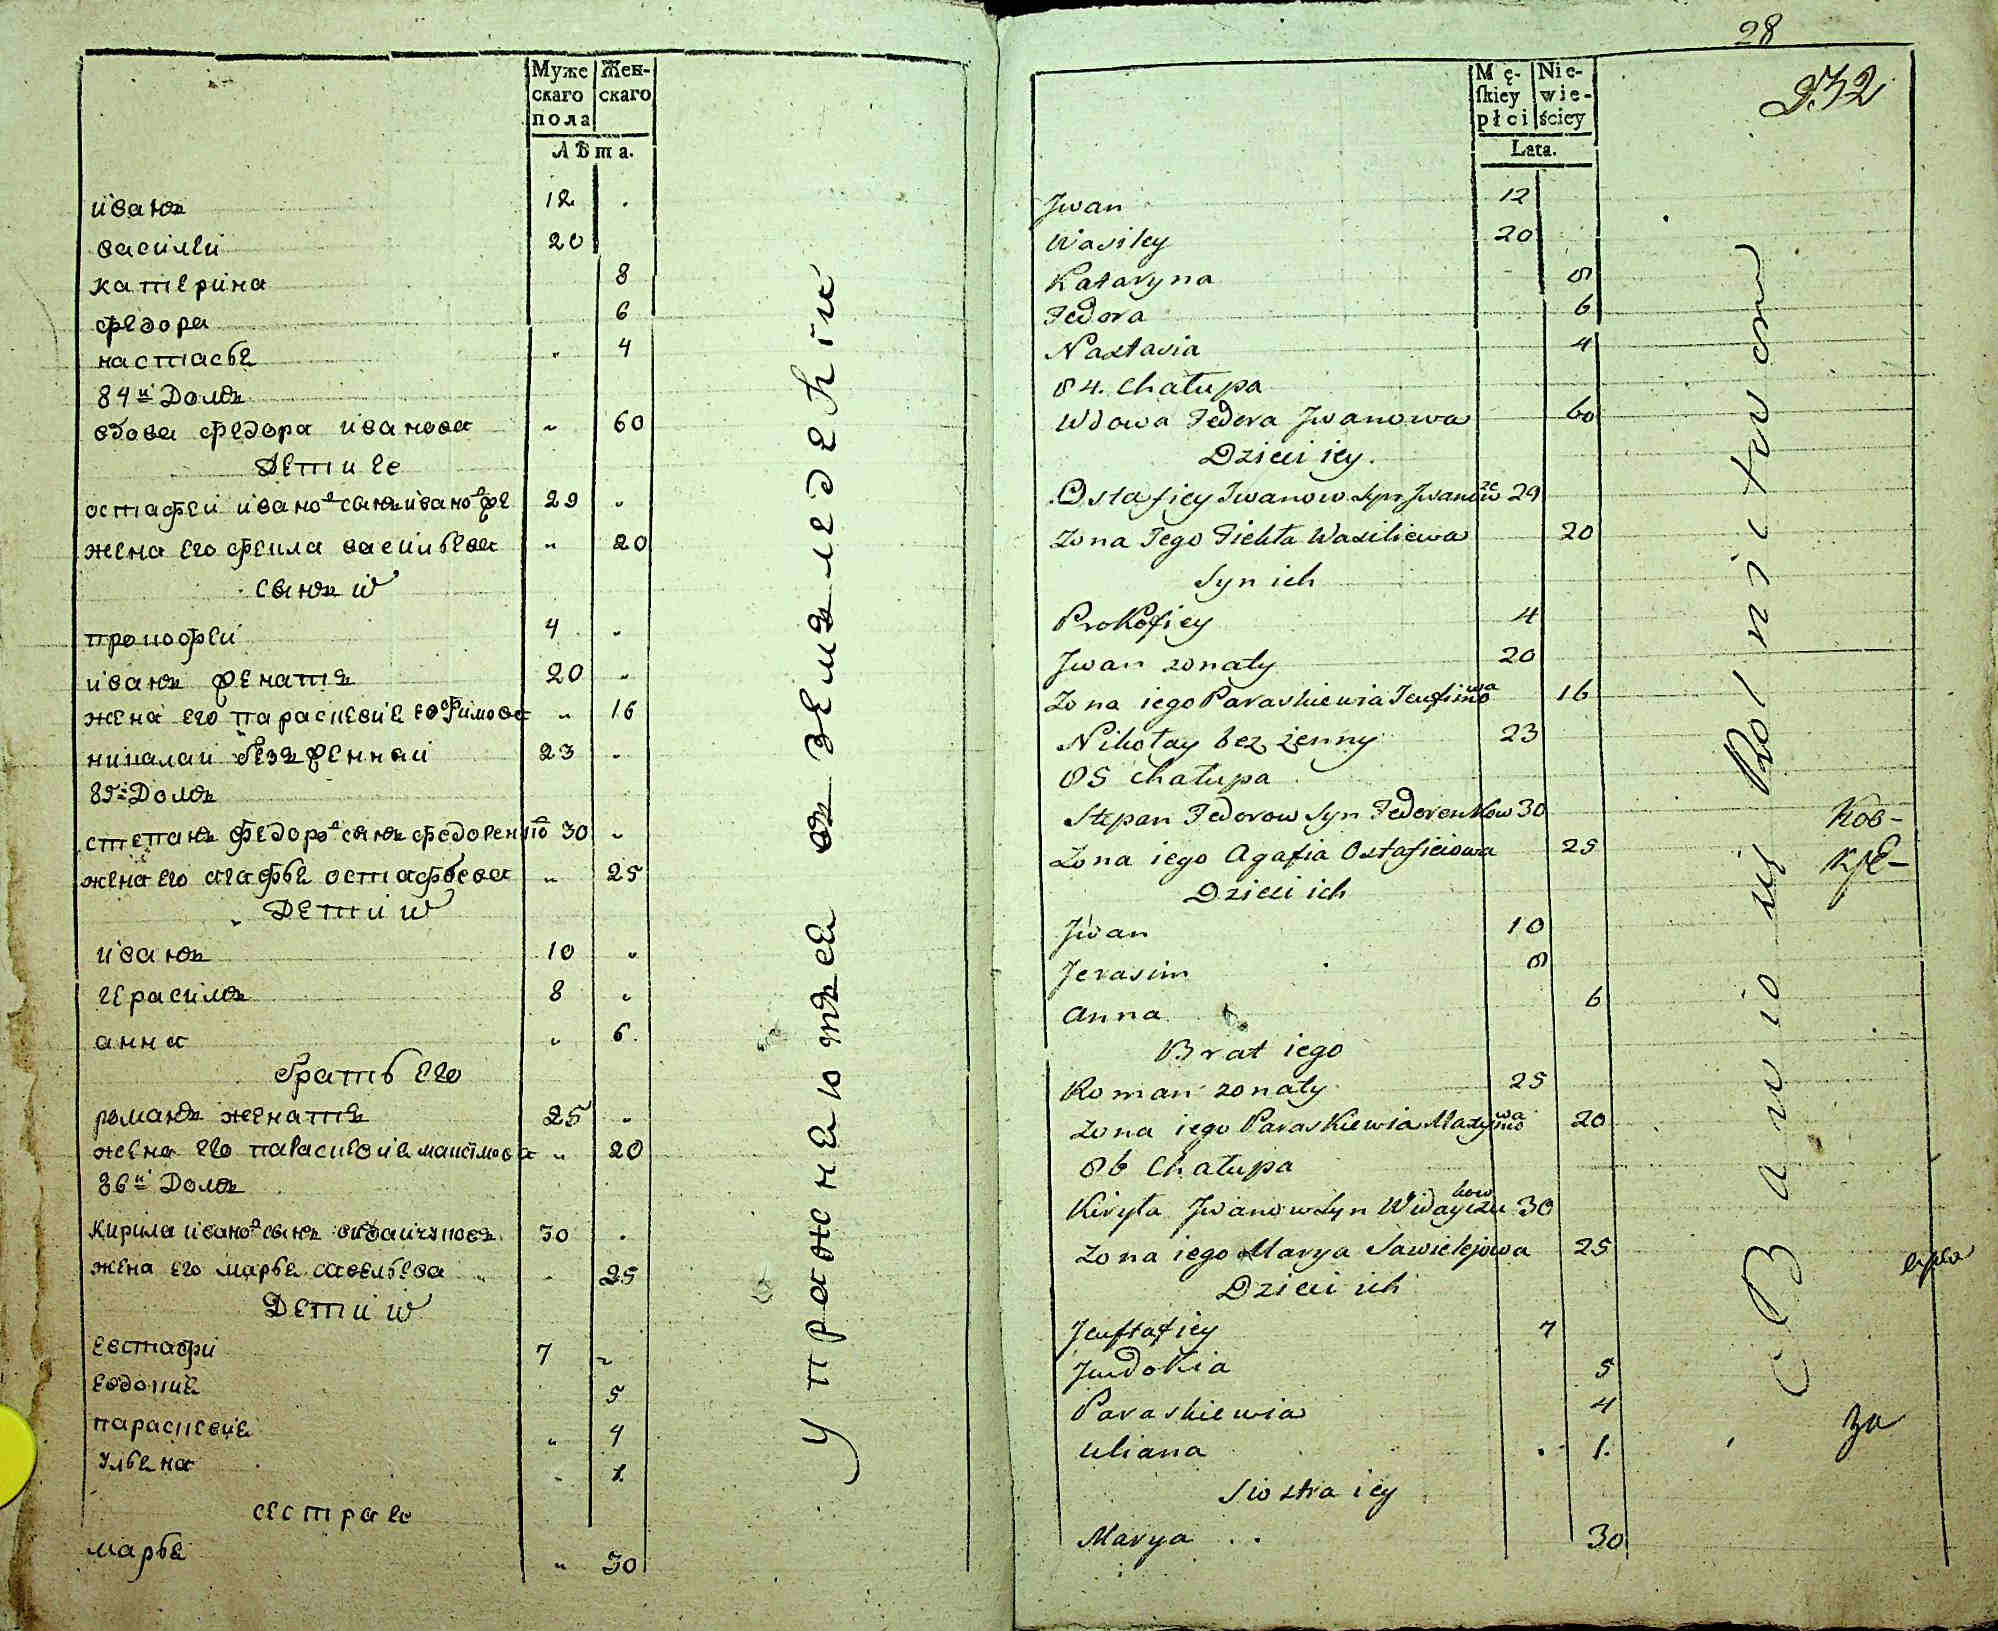 Муже
скаго
пола
Жен-
скаго
Лѣта.
иванъ 12
василеи 20
катерина 8
федора 6
настасье 4
84й Домъ
вдова федора иванова 60
Дети ее
остафеи ивано сынъ ивано же 29
жена его фекла васильева 20
сынъ их
прокофеи 4
иванъ женатъ 20
жена его параскевие евфимова 16
никалаи безъженнаи 23
85й Домъ
степанъ федоро сынъ федоренко 30
жена его агафье остафьева 25
Дети их
иванъ 10
герасимъ 8
анна 6.
братъ его
романъ женатъ 25
жена его параскевие максимова 20
86й Домъ
Кирила ивано сынъ видаичуковъ 30
жена его марье савельева 25
Дети их
евстафи 7
евдокие 5
параскевие 4
ульена 1
сестра ее
марье 30
Упражнеютъся въ земъледеҍлии
28
232
Mę-
skiey
płci
Nie-
wie-
ściey
Lata.
Jwan 12
Wasiley 20
Kataryna 8
Fedora 6
Nastasia 4
84. Chałupa
Wdowa Fedora Jwanowa 60
Dzieci iey.
Ostafiey Jwanow Syn Jwanow że 29
Żona Jego Fiekła Wasiliewa 20
Syn ich
Prokofiey 4
Jwan żonaty 20
Żona iego Paraskiewia Jeufimowa 16
Nikołay bez żenny 23
85 Chałupa
Stepan Fedorow Syn Fedorenkow 30
Żona iego Agafia Ostafieiowa 25
Dzieci ich
Jwan 10
Jerasim 8
Anna 6
Brat iego
Roman żonaty 25
Żona iego Paraskiewia Maxymowa 20
86 Chałupa
Kiryła Jwanow Syn Widayczukow 30
Żona iego Marya Sawielejowa 25
Dzieci ich
Jeustafiey 7
Jeudokia 5
Paraskiewia 4
Uliana 1.
Siostra iey
Marya 30
Bawio się Rolnictwem
Ков-
кре-
за